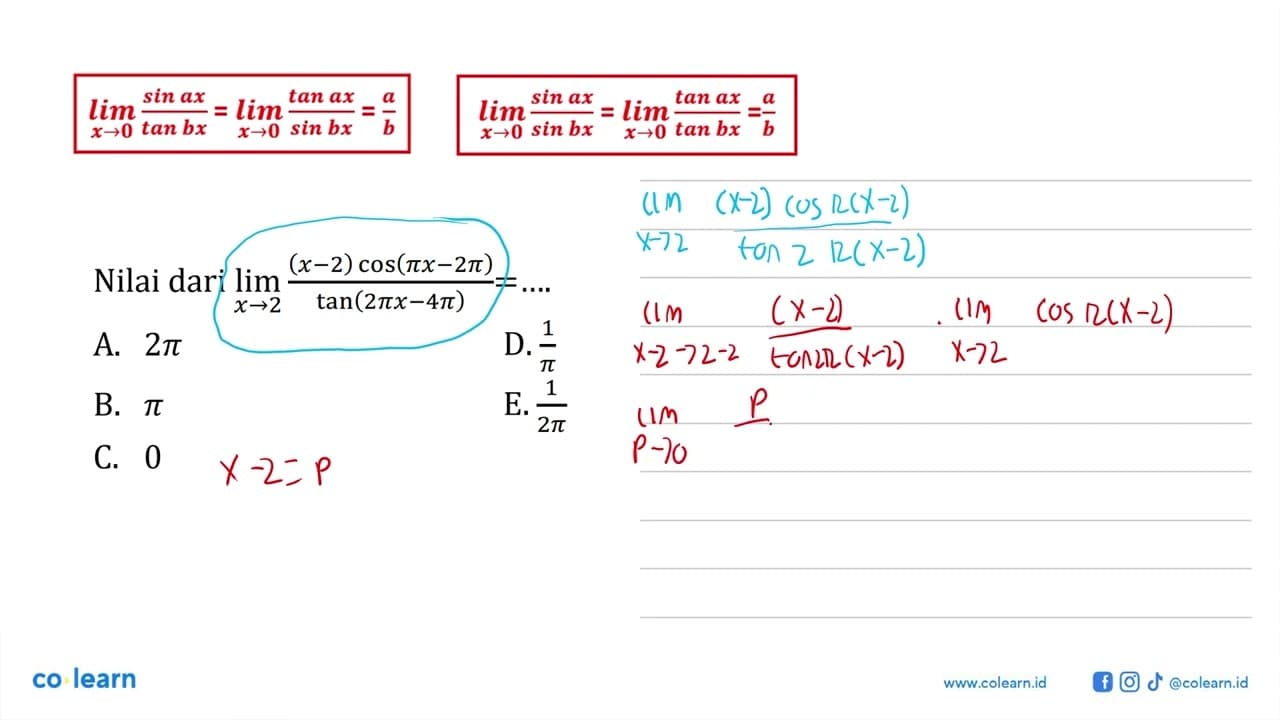 lim x→0 sin ax / tan bx = lim x→0 tan ax / sin bx = a/b
lim x→0 sin ax / sin bx = lim x→0 tan ax / tan bx = a/b
Nilai dari lim x→2 (x−2) cos(πx−2π) / tan(2πx−4π) = ....
A. 2π
B. π
C. 0
D. 1/π
E. 1/2π
x-2=p
lim x→2 (x-2) cos π(x-2) / tan 2 π(x-2)
lim x-2→2-2 (x-2) / tan 2π(x-2) . lim x→2 cos π(x-2)
lim p→0 p
co·learn
www.colearn.id
@colearn.id